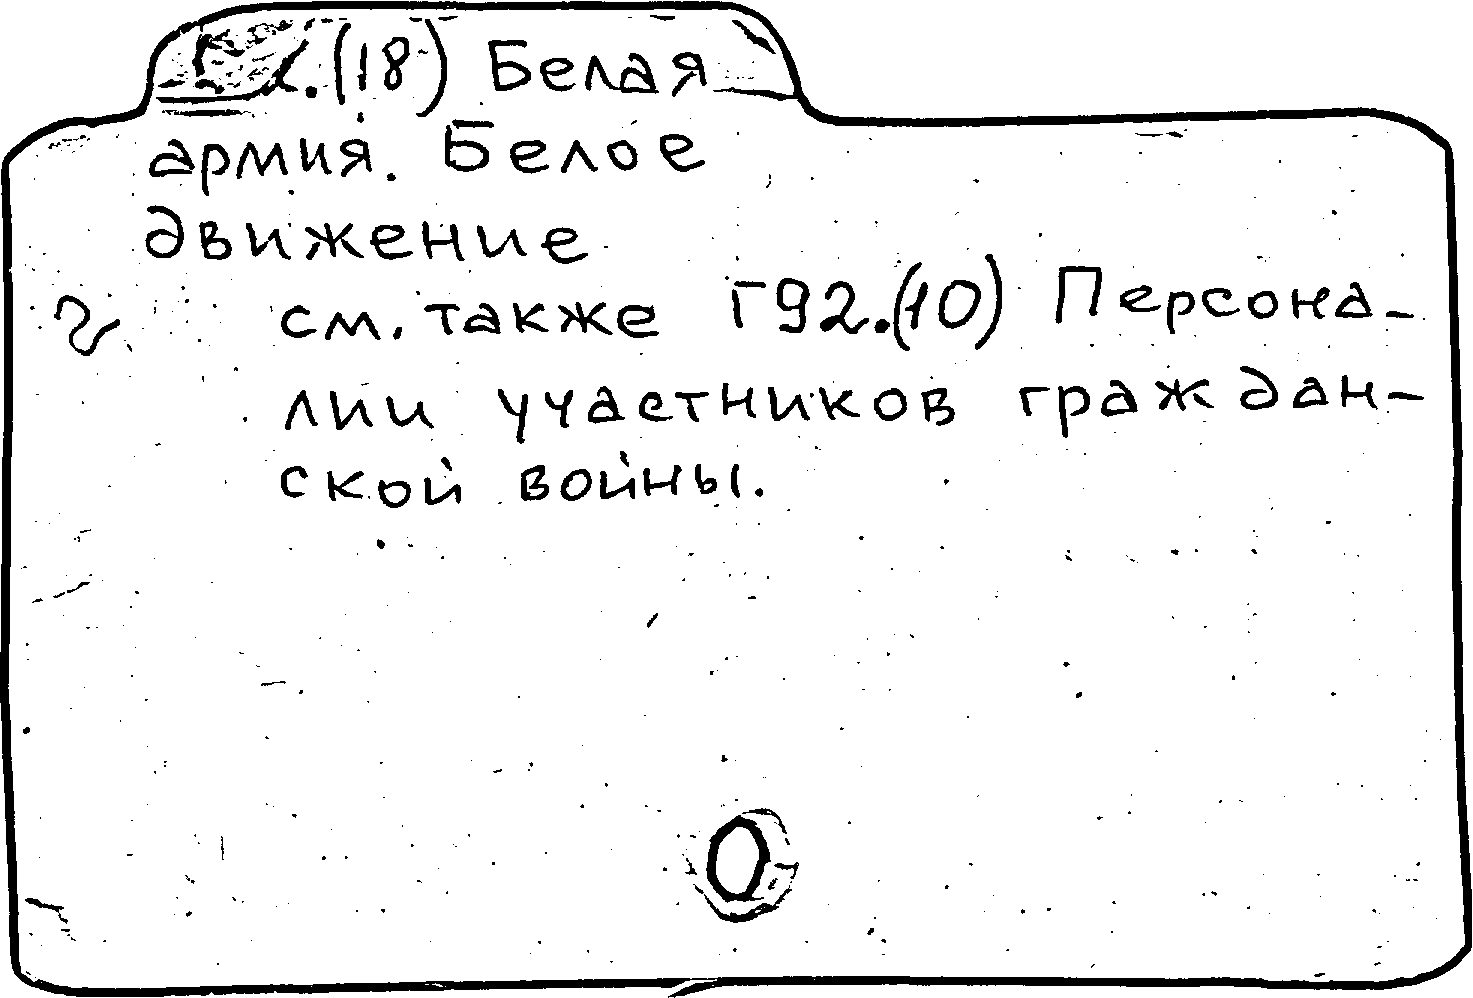 .(18) Белая
армия. Белое
движение
см. также Г92.(10) Персона-
лии участников граждан-
ской войны.